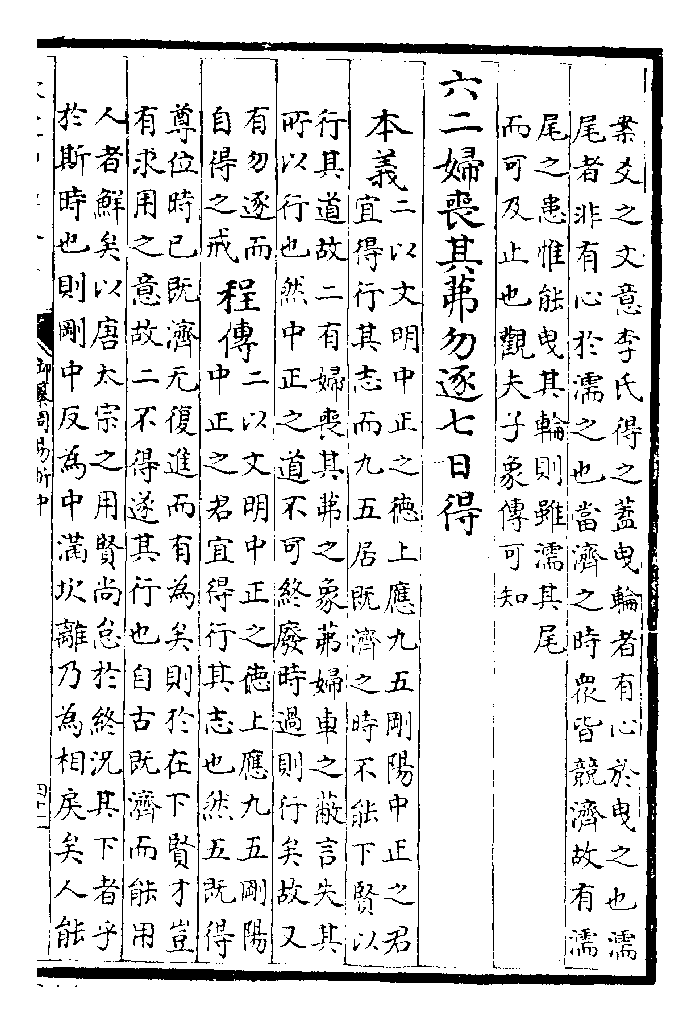 案爻之文意李氏得之蓋曳輪者有心於曳之也濡
尾者非有心於濡之也當濟之時衆皆競濟故有濡
尾之患惟能曳其輪則雖濡其尾
而可及止也觀夫子象傳可知
六二婦喪其茀勿逐七日得
本義二以文明中正之德上應九五剛陽中正之君
宜得行其志而九五居既濟之時不能下賢以
行其道故二有婦喪其茀之象茀婦車之蔽言失其
所以行也然中正之道不可終廢時過則行矣故又
有勿逐而
自得之戒
程傳二以文明中正之德上應九五剛陽
中正之君宜得行其志也然五既得
尊位時已既濟无復進而有為矣則於在下賢才豈
有求用之意故二不得遂其行也自古既濟而能用
人者鮮矣以唐太宗之用賢尚怠於終況其下者乎
於斯時也則剛中反為中滿坎離乃為相戾矣人能
御纂周易折中
四十二